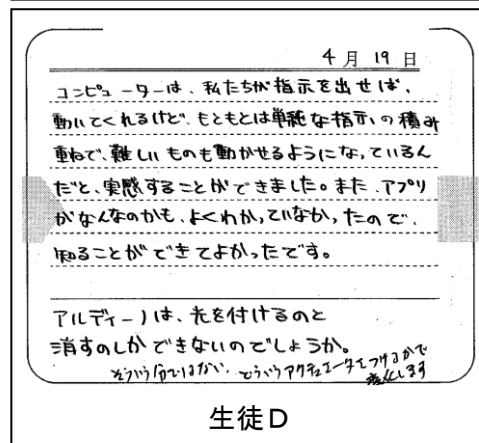 4月19日
コンピューターは、私たちが指示を出せば、
動いてくれるけど、もともとは単純な指示の積み
重ねで、難しいものも動かせるようになっているん
だと、実感することができました。また、アプリ
がなんなのかも、よくわかっていなかったので、
知ることができてよかったです。
アルディーノは、光を付けるのと
消すのしかできないのでしょうか。
そういう分ではない。どういうアクチュエータをつけるかで
変化します
生徒D